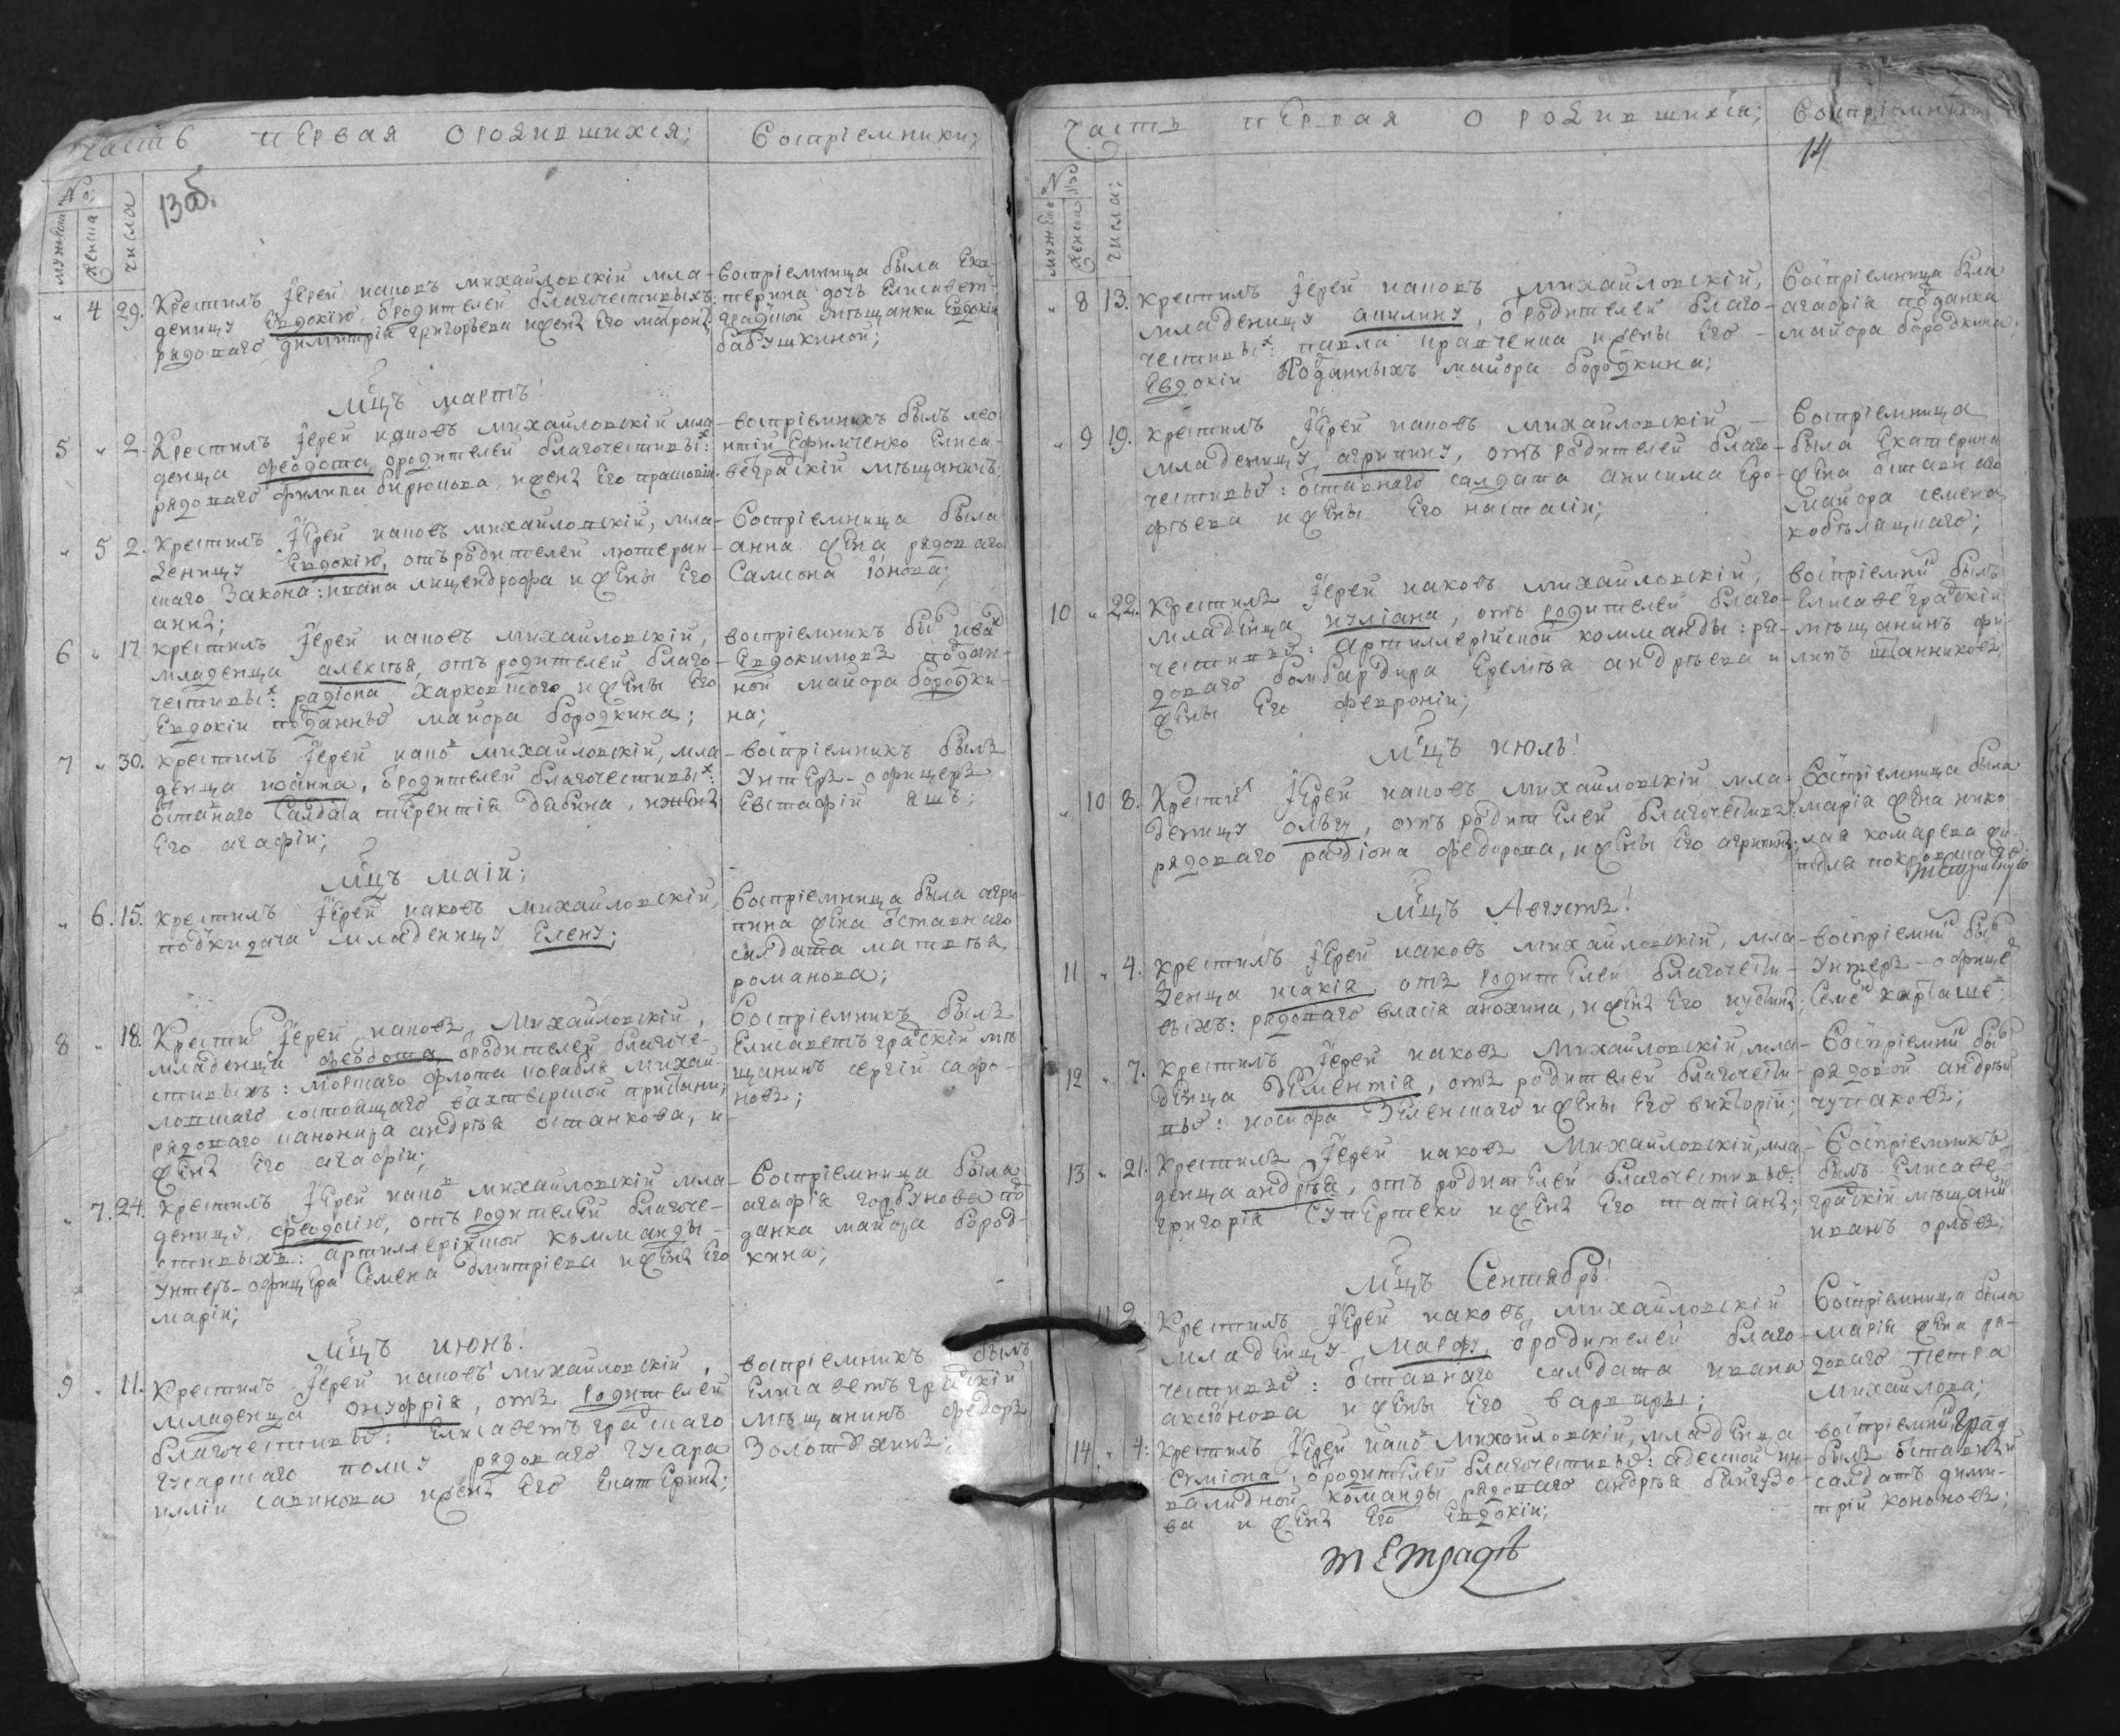 часть первая о родившихся;
Воспрiемники;
13об.
№
мужеска
женска
числа
4 29. Крестилъ Іерей иаковъ михайловскiй мла-
деницу Евдокiю, ѿ родителей благочестивыхъ:
рядоваго димитрiя григорьева и жены Его матроны
Воспрiемница была Ека-
терина дочь Елисавет-
градской мѣщанки Евдокiи
бабушкиной;
Мцъ мартъ!
5 " 2. Крестилъ Іерей иаковъ михайловскiй мла-
денца феодота, ѿ родителей благочестивыхъ:
рядоваго филипа бирюкова, и жены Его прасковiи.
воспрiемникъ былъ лео-
нтiй Ефимченко Елиса-
ветградскiй мѣщанинъ;
" 5 2. Крестилъ Іерей иаковъ михайловскiй, мла-
деницу Евдокiю, отъ родителей лютеран-
скаго Закона: ивана лищендрофа и жены Его
анны;
Воспрiемница была
анна жена рядоваго
Самсона Iонова;
6 " 17 крестилъ Іерей иаковъ михайловскiй,
младенца алексѣя, отъ родителей благо-
честивыхъ: радiона харковского и жены Его
Евдокiи подданныхъ майора бородкина;
воспрiемникъ былъ иванъ
Евдокимовъ поддан-
ной майора бородки-
на;
7 " 30. крестилъ Іерей иаковъ михайловскiй, мла-
денца иоанна, ѿ родителей благочестивыхъ:
ѿставнаго Салдата терентiя дабина, и жены
Его агафiи;
воспрiемникъ былъ
Унтеръ-офицеръ
Евстафiй яшъ;
Мцъ маiй;
" 6. 15. крестилъ Іерей иаковъ михайловскiй,
подкидача младеницу Елену;
Воспрiемница была агри-
пина жена ѿставнаго
салдата матвѣя
романова;
8 " 18. Крестилъ Іерей иаковъ Михайловскiй,
младенца феодота ѿ родителей благоче-
стивыхъ: морскаго флота корабля михай-
ловскаго состоящаго вахтерской пристани,
рядоваго канонира андрѣя останкова, и
жены Его агафiи;
Воспрiемникъ былъ
Елисаветъградскiй мѣ-
щанинъ сергiй сафро-
новъ;
" 7. 24. крестилъ Іерей иаковъ михайловскiй мла-
деницу феодосiю, отъ родителей благоче-
стивыхъ: артиллерiйской комманды
Унтеръ-офицера Семена дмитрiева и жены Его
марiи;
Воспрiемница была
агафiя горбунова под-
данка майора бород-
кина;
Мцъ июнь!
9 " 11. Крестилъ Іерей иаковъ михайловскiй,
младенца онуфрiя, отъ родителей
благочестивыхъ: Елисаветъградскаго
гусарскаго полку рядоваго гусара
иллiи савинова и жены Его Екатерины;
воспрiемникъ былъ
Елисаветъградскiй
мѣщанинъ федоръ
Золотухинъ;
Часть первая о родившихся;
Воспрiемники
14
№
мужеска
женска
числа;
" 8 13. крестилъ Іерей иаковъ михайловскiй,
младеницу акилину, ѿ родителей благо-
честивыхъ: павла кравченка и жены Его
Евдокiи подданныхъ майора бородкина;
Воспрiемница была
агафiя подданка
майора бородкина;
" 9 19. крестилъ Іерей иаковъ михайловскiй,
младеницу агрипину, отъ родителей благо-
честивыхъ: ѿставнаго салдата анисима Еро-
фѣева и жены Его настасiи;
Воспрiемница
была Екатерина
жена ѿставнаго
майора семена
кобѣляцкаго;
10 " 22. крестилъ Іерей иаковъ михайловскiй,
младенца иулiана, отъ родителей благо-
честивыхъ: Артиллерiйской комманды: ря-
доваго бомбардира Еремѣя андрѣева и
жены Его февронiи;
воспрiемникъ былъ
Елисаветградскiй
мѣщанинъ фи-
липъ
Мцъ июль!
" 10 8. Крестилъ Іерей иаковъ михайловскiй мла-
деницу ольгу, отъ родителей благочестивыхъ:
рядоваго радiона федорова, и жены Его агрипины;
Воспрiемница была
марiя жена нико-
лая комарева
Мцъ Августъ!
11 " 4. крестилъ Іерей иаковъ михайловскiй, мла-
денца исакiя отъ родителей благочести-
выхъ: рядоваго власiя анохина, и жены Его иустины;
воспрiемникъ былъ
Унтеръ-офицеръ
Семенъ карташевъ;
12 " 7. крестилъ Іерей иаковъ Михайловскiй, мла-
денца Дементiя, отъ родителей благочести-
выхъ: иосифа Зеленскаго и жены Его викторiи;
Воспрiемникъ былъ
рядовой андрей
чумаковъ;
13 " 21. крестилъ Іерей иаковъ Михайловскiй, мла-
денца андрѣя, отъ родителей благочестивыхъ:
григорiя и жены Его татiаны;
Воспрiемникъ
былъ Елисавет-
градскiй мѣщанинъ
иванъ орловъ;
Мцъ Сентябрь!
11 2. Крестилъ Іерей иаковъ михайловскiй
младеницу Марфу, ѿ родителей благо-
честивыхъ: ѿставнаго салдата ивана
аксiонова и жены Его варвары;
Воспрiемница была
марiя жена ря-
доваго петра
Михайлова;
14 " 4: крестилъ Іерей иаковъ михайловскiй, младенца
Симiона, ѿ родителей благочестивыхъ: адесской ин-
валидной команды рядоваго андрѣя байгузо-
ва и жены Его Евдокiи;
воспрiемникъ
былъ ѿставный
салдатъ дими-
трiй кононовъ;
тетрадѣ